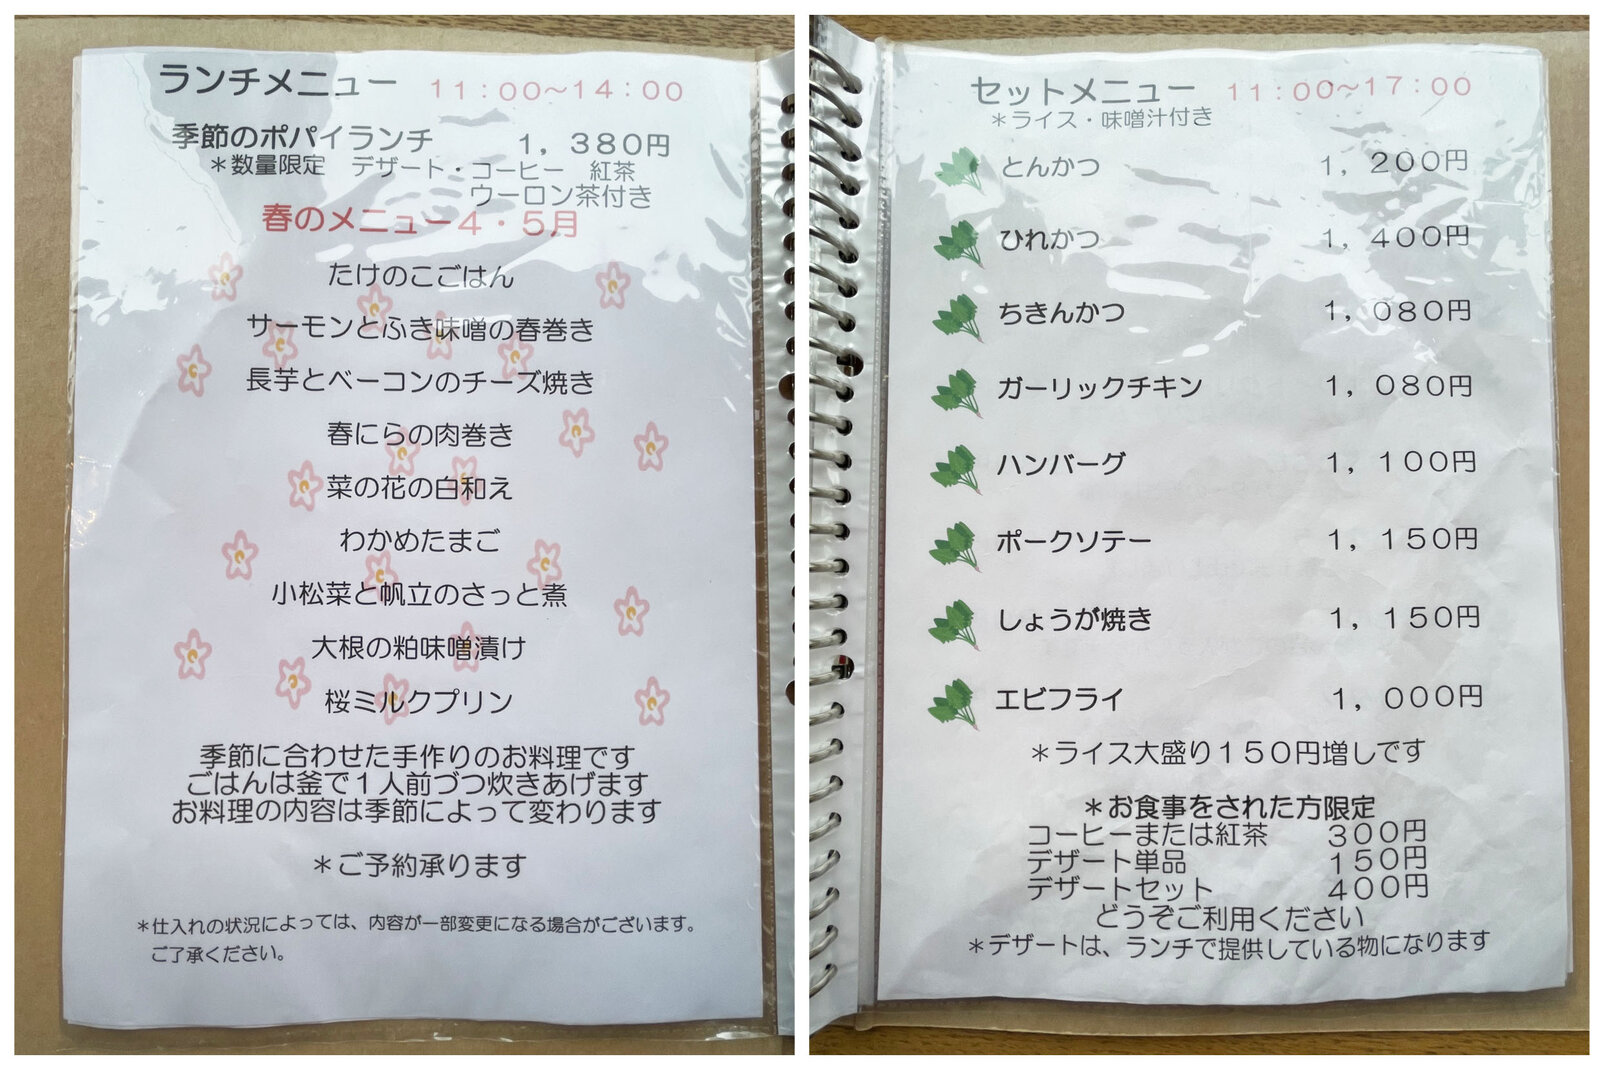 ランチメニュー 11:00～14:00
季節のポパイランチ 1,380円
＊数量限定 デザート・コーヒー 紅茶
ウーロン茶付き
春のメニュー4・5月
たけのこごはん
サーモンとふき味噌の春巻き
長芋とベーコンのチーズ焼き
春にらの肉巻き
菜の花の白和え
わかめたまご
小松菜と帆立のさっと煮
大根の粕味噌漬け
桜ミルクプリン
季節に合わせた手作りのお料理です
ごはんは釜で1人前づつ炊きあげます
お料理の内容は季節によって変わります
＊ご予約承ります
＊仕入れの状況によっては、内容が一部変更になる場合がございます。
ご了承ください。
セットメニュー 11:00～17:00
＊ライス・味噌汁付き
とんかつ 1,200円
ひれかつ 1,400円
ちきんかつ 1,080円
ガーリックチキン 1,080円
ハンバーグ 1,100円
ポークソテー 1,150円
しょうが焼き 1,150円
エビフライ 1,000円
＊ライス大盛り150円増しです
＊お食事をされた方限定
コーヒーまたは紅茶 300円
デザート単品 150円
デザートセット 400円
どうぞご利用ください
＊デザートは、ランチで提供している物になります